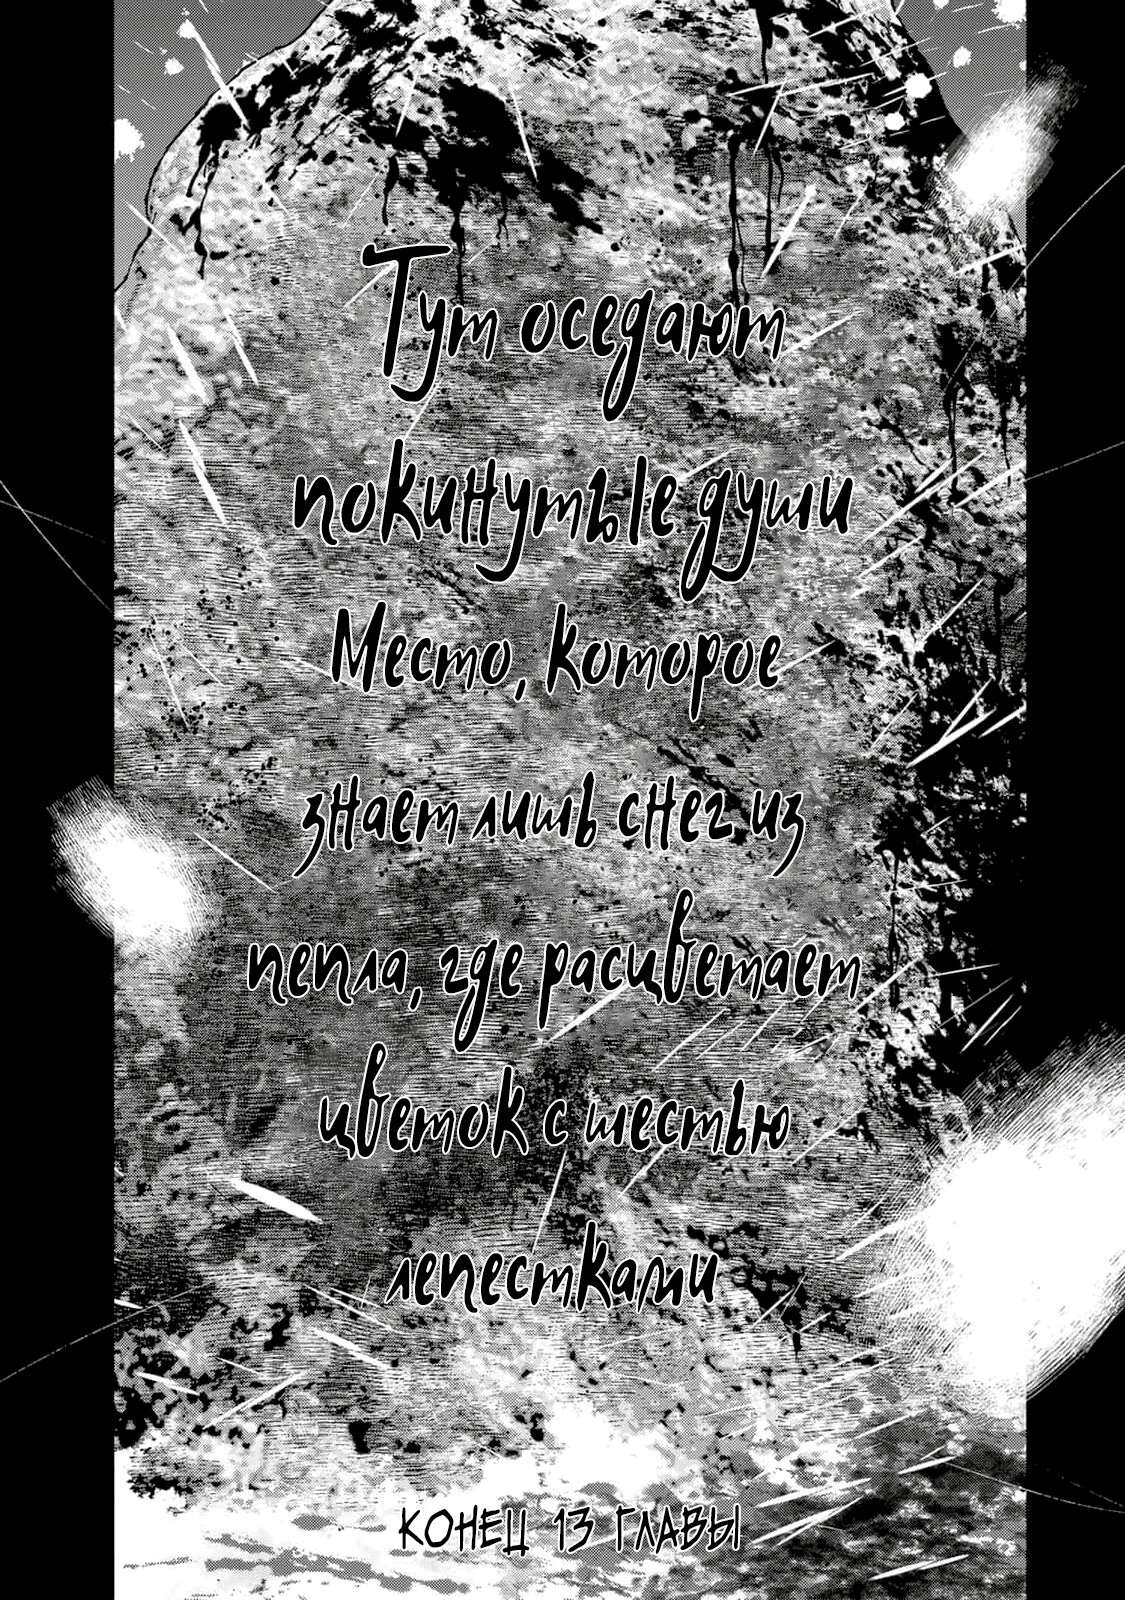 Тут оседают
покинутые души
Место, которое
знает лишь снег из
пепла, где расцветает
цветок с шестью
лепестками
КОНЕЦ 13 ГЛАВЫ